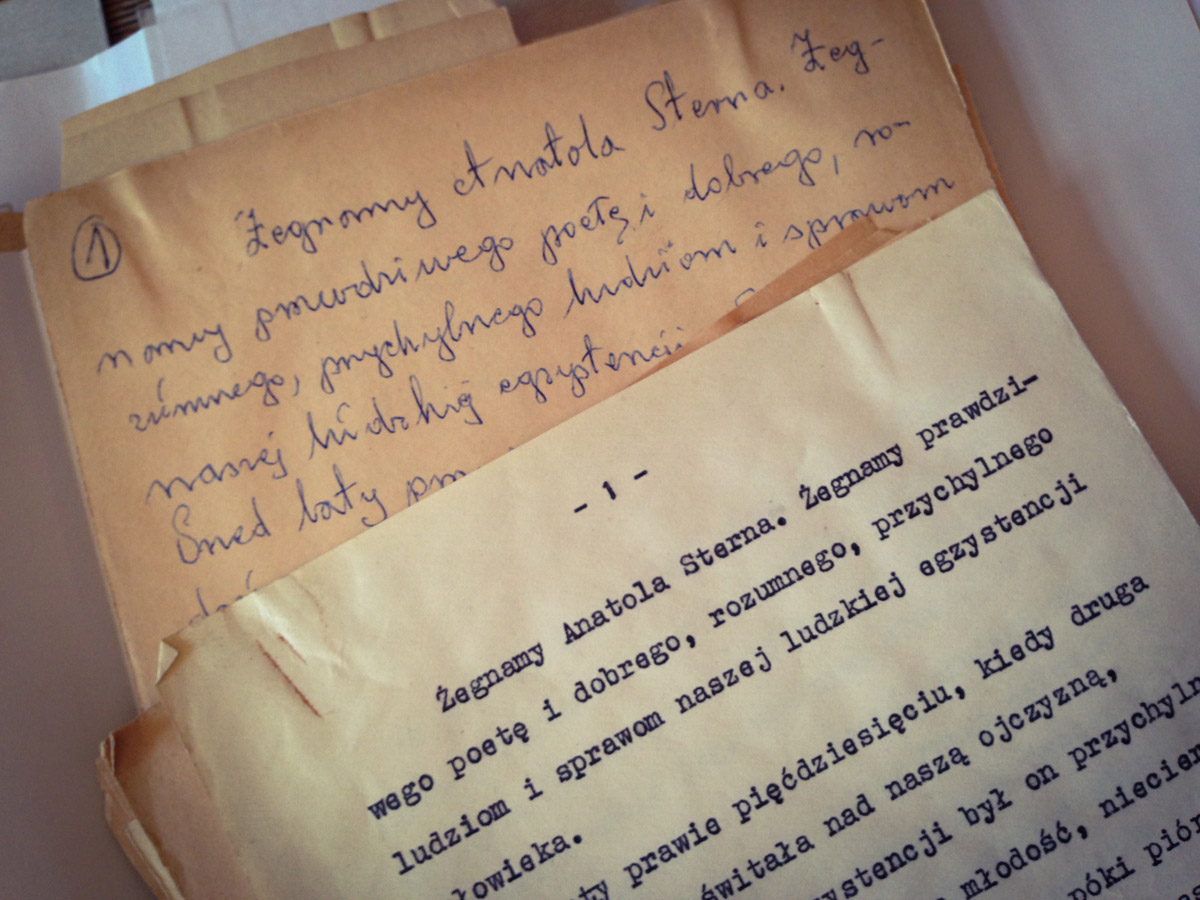 1
Żegnamy Anatola Sterna. Żeg-
namy prawdziwego poetę i dobrego, ro-
zumnego, przychylnego ludziom i sprawom
naszej ludzkiej egzystencji
Sned laty
- 1 -
Żegnamy Anatola Sterna. Żegnamy prawdzi-
wego poetę i dobrego, rozumnego, przychylnego
ludziom i sprawom naszej ludzkiej egzystencji
łowieka.
ty prawie pięćdziesięciu, kiedy druga
świtała nad naszą ojczyzną,
ystencji był on przychyln
młodość, niecier
póki piór